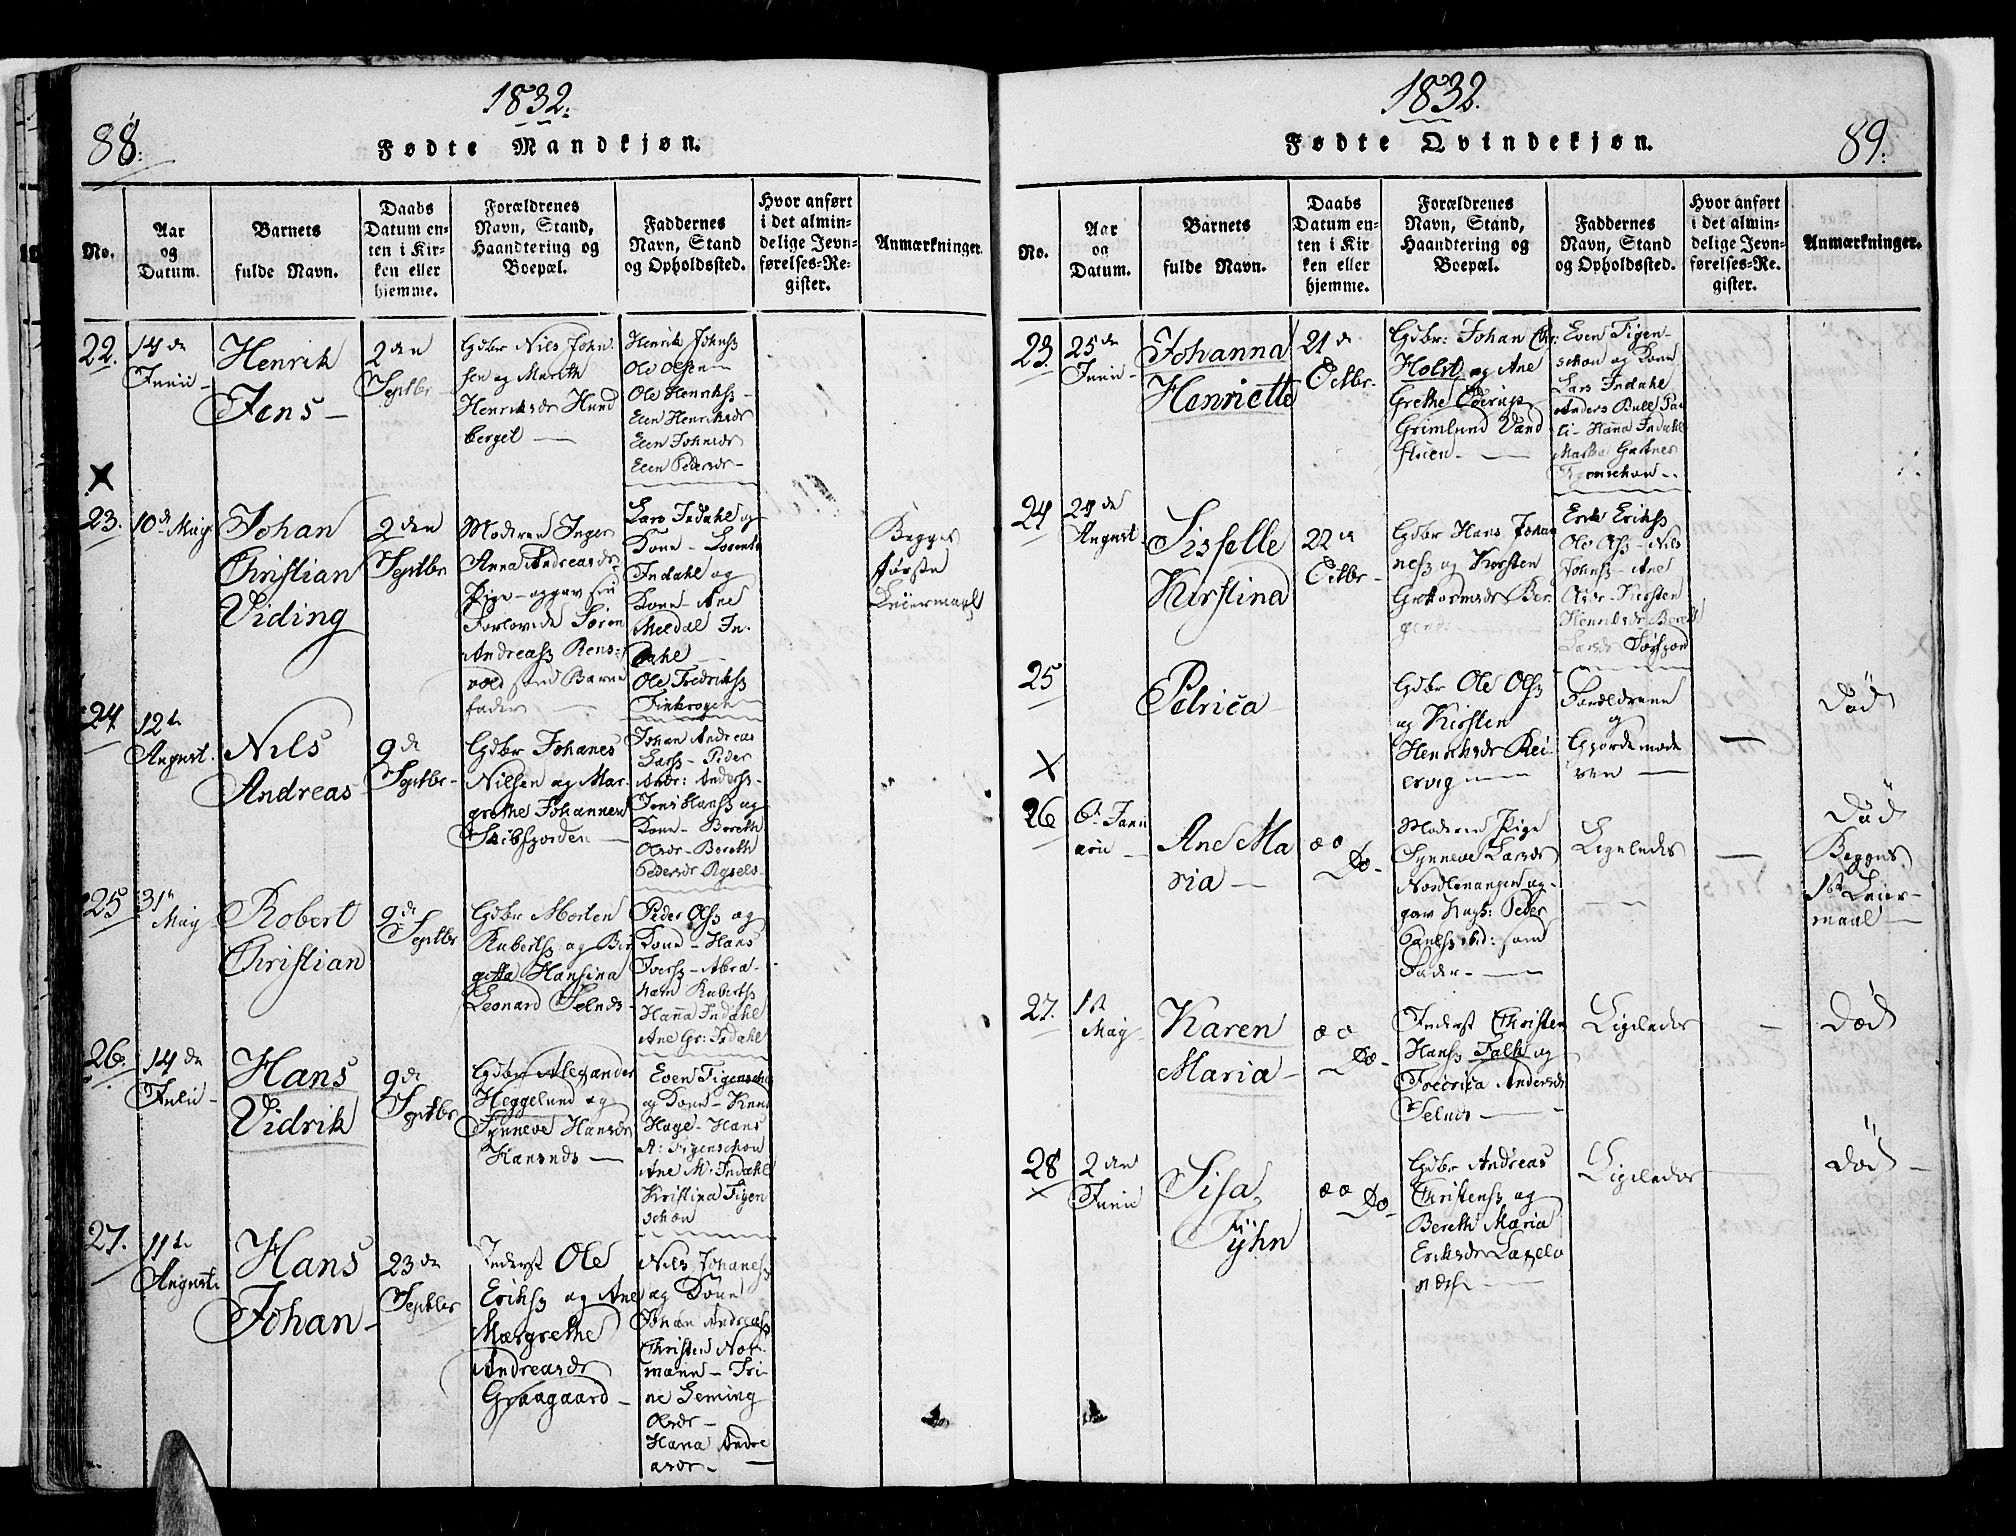 1832.
88.
Fødte Mandkjøn.
No.
Aar
og
Datum.
Barnets
fulde Navn.
Daabs
Datum en-
ten i Kir-
ken eller
hjemme.
Forældrenes
Navn, Stand,
Haandtering og
Boepæl.
Faddernes
Navn, Stand
og Opholdssted.
Hvor anført
i det almin-
delige Jevn-
førelses-Re-
gister.
Anmærkninger.
22.
14de
Junii
Henrik
Jens
2den
Septbr
Gdbr Nils John
sen og Marith
Henriksdr Hund
berget
Henrik Johnsz
Ole Olsen
Ole Henriksz
Elen Henriksdr
Elen Johnsdr
Elen Pedersdr
23.
10de May
Johan
Christian
Viding
2den
Septbr
Moderen Inger
Anna Andreasdr
Pige - opgav sin
Forlovede Søren
Andreasz Rens-
vold som Barne
fader
Lars Indahl og
Kone - Lorents
Indahl og
Kone - Ane
Meldal In-
dahl
Ole Fredriksz
Finkrogen
Begges
første
Leiermaal
24
12te
August.
Nils
Andreas
9de
Septbr
Gdbr Johanes
Nilsen og Mar-
grethe Johannesd
Skibsfjorden
Johan Andreas
Larsz - Peder
Andr: Andersz -
Jens Hansz og
Kone - Bereth
Olsdr - Bereth
Pedersdr Rysels
25
31te
May
Robert
Christian
9de
Septbr
Gdbr Morten
Rubertsz og Bir
gitta Hansina
Leonard Selnds
Peder Olsz og
Kone - Hans
Iversz - Abra-
ham Rubertsz
Hanna Indahl
Ane Gr: Indahl
26.
14de
Julii
Hans
Vidrik
9de
Septbr
Gdbr Alexander
Heggelund og
Synneve Hansdr
Hansnds
Even Figenschou
og Kone - Knud
Hage - Hans
A: Figenschou
Ane M: Indahl
Kristina Figen
schou
27.
11te
August
Hans
Johan
23de
Septbr
Inderst Ole
Eriksz og Ane
Margrethe
Andreasdr
Graagaard
Nils Johanesz
og Kone
Johan Andreasz
Christen Not-
mann - Tri-
ne Leming
Olsdr
Hana Andre
asdr
1832.
89.
Fødte Qvindekjøn.
No.
Aar
og
Datum.
Barnets
fulde Navn.
Daabs
Datum en-
ten i Kir
ken eller
hjemme.
Forældrenes
Navn, Stand,
Haandtering og
Boepæl.
Faddernes
Navn, Stand
og Opholdssted.
Hvor anført
i det almin-
delige Jevn-
førelses-Re.
gister.
Anmærkninger.
23.
25de
Junii
Johanna
Henriette
21de
Octbr
Gdbr: Johan Chr:
Holst og Ane
Grethe Eberup
Grimlund Vand
stuen
Even Figen-
schou og Kone
Lars Indahl
Anders Bull Pau
li - Hanna Indahl
Martha Gartner
Figenschou
24
24de
August
Sisselle
Kirstina
22de
Octbr
Gdbr Hans Johan
nesz og Kirsten
Guttormsdr Ber
Erik Eriksz
Ole Olsz - Nils
Johnsz - Ane
Olsdr - Kirsten
Henriksdr Bereth
Larsdr
25
Petrica
Gdbr Ole Olsz
og Kirsten
Henriksdr Rei-
ervig
Forældrene
og
Gjordemode
ren
Død
26
6te Janu
arii
Ane Ma
ria
Do
Moderen Pige
Synneve Larsdr
Nordlenangen op-
gav Ungk: Peder
Paulsz ibid: som
Fader
Ligeledes
Død
Begges
1ste Leier-
maal
27.
1ste
May
Karen
Maria
Do
Inderst Christen
Hansz Falk og
Fredrica Andersdr
Selnds
Ligeledes
Død
28
2den
Junii
Sisa
Fyhn
Do
Gdbr Andreas
Christensz og
Bereth Maria
Eriksdr
Ligeledes
Død